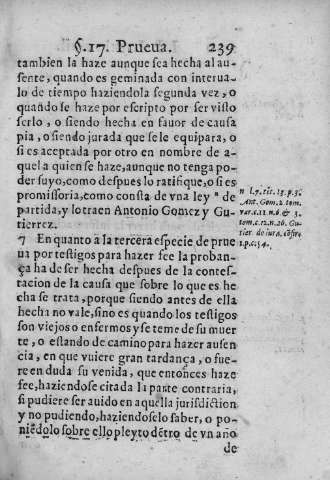 §.17. Prueva. 239
tambien la haze aunque sea hecha al au-
sente, quando es geminada con interua-
lo de tiempo haziendola segunda vez, o
quando se haze por escripto por ser visto
serlo, o siendo hecha en fauor de causa
pia, o siendo jurada que se le equipara, o
si es aceptada por otro en nombre de a-
quel a quien se haze, aunque no tenga po-
der suyo, como despues lo ratifique, o si es
promissoria, como consta de vna ley ⁿ de
partida, y lo traen Antonio Gomez y Gu-
tierrez.
7 En quanto a la tercera especie de prue
ua por testigos para hazer fee la proban-
ça ha de ser hecha despues de la contes-
tacion de la causa que sobre lo que es he
cha se trata, porque siendo antes de ella
hecha no vale, sino es quando los testigos
son viejos o enfermos y se teme de su muer
te, o estando de camino para hazer ausen
cia, en que vuiere gran tardança, o fue-
re en duda su venida, que entonces haze
fee, haziendose citada la parte contraria,
si pudiere ser auido en aquella jurisdiction
y no pudiendo, haziendoselo saber, o po-
niẽdolo sobre ello pleyto dẽtro de vn año
de
n l.7. tit. 13. p.3.
Ant. Gom. 2. tom.
var. c.12. n.6 & 3.
tom. c.12. n.26. Gu-
tier. de iura. cõfir.
1.p.c.54.